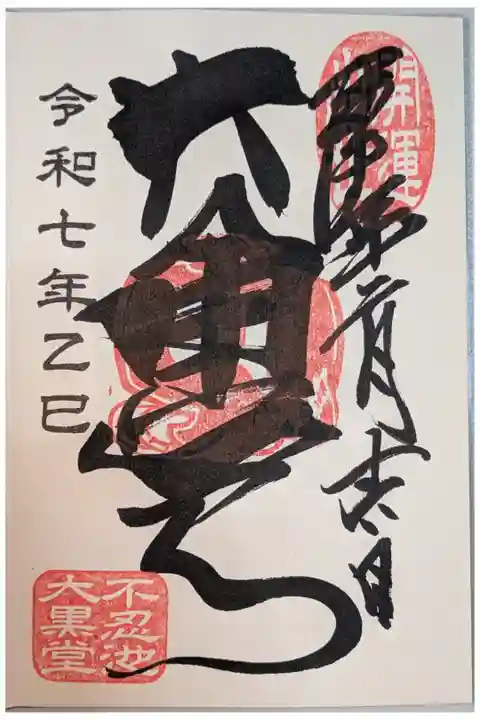 開運
月吉日
大黒天
令和七年乙巳
不忍池
大黒堂